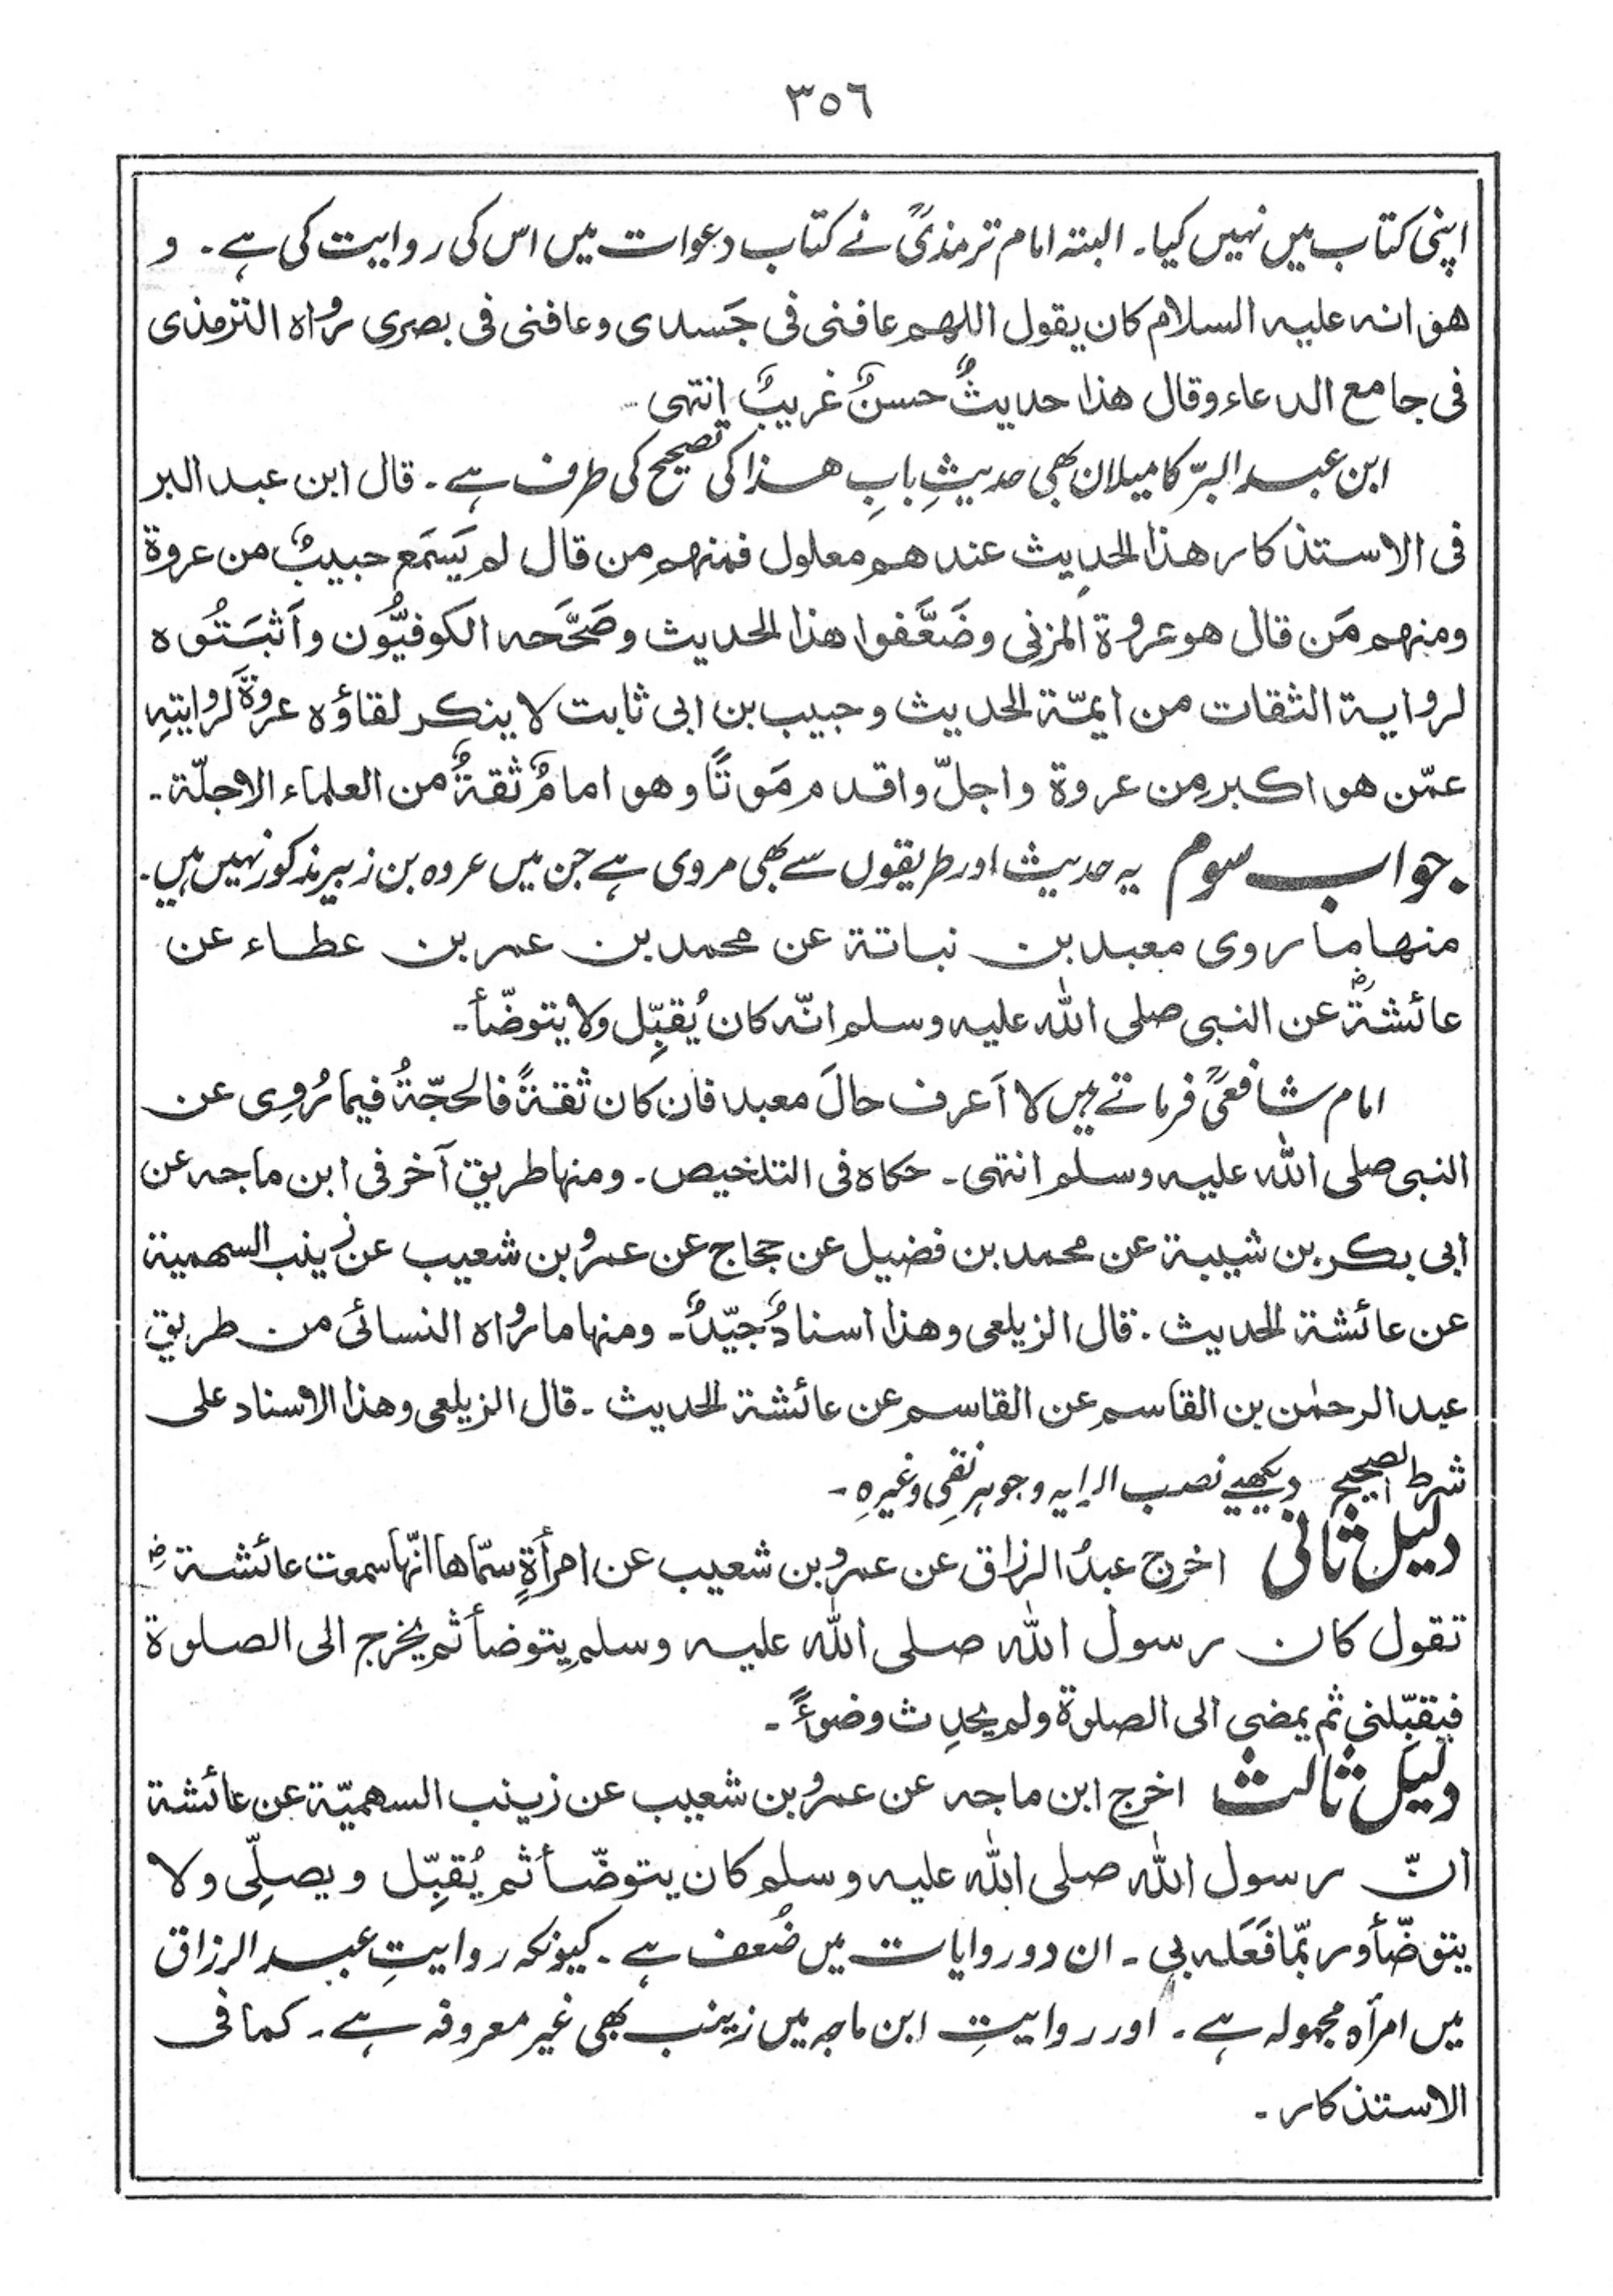 ٣٥٦
اپنی کتاب میں نہیں کیا۔ البتہ امام ترمذیؒ نے کتاب دعوات میں اس کی روایت کی ہے۔ و
هو انه عليه السلام كان يقول اللهم عافنى فى جَسدى وعافنى فى بصرى رواه الترمذى
فى جامع الدعاء وقال هذا حديثٌ حسنٌ غريبٌ انتهى۔
ابن عبد البرّ کا میلان بھی حدیثِ بابِ ھذا کی تصحیح کی طرف ہے۔ قال ابن عبد البر
فى الاستذكار هذا الحديث عندهم معلول فمنهم من قال لم يَسمَع حبيبٌ من عروة
ومنهم مَن قال هو عروة المزنى وضَعَّفوا هذا الحديث وصَحَّحه الكوفيُّون واَثبَتُوه
لرواية الثقات من ايمّة الحديث وحبيب بن ابى ثابت لا ينكر لقاؤه عروةَ لروايتِه
عمّن هو اكبر مِن عروة واجلّ واقدم مَوتًا وهو امامٌ ثقةٌ من العلماء الاجلّة۔
جواب سوم یہ حدیث اور طریقوں سے بھی مروی ہے جن میں عروہ بن زبیر مذکور نہیں ہیں۔
منها ما روى معبد بن نباتة عن محمد بن عمر بن عطاء عن
عائشةؓ عن النبى صلى الله عليه وسلم انّه كان يُقبِّل ولا يتوضّأ۔
امام شافعیؒ فرماتے ہیں لا اَعرف حالَ معبد فان كان ثقةً فالحجّةُ فيما رُوِى عن
النبى صلى الله عليه وسلم انتهى۔ حكاه فى التلخيص۔ ومنها طريق آخر فى ابن ماجه عن
ابى بكر بن شيبة عن محمد بن فضيل عن حجاج عن عمرو بن شعيب عن زينب السهمية
عن عائشة الحديث۔ قال الزيلعى وهذا اسنادٌ جيّدٌ۔ ومنها ما رواه النسائى من طريق
عبد الرحمٰن بن القاسم عن القاسم عن عائشة الحديث۔ قال الزيلعى وهذا الاسناد على
شرط الصحيح دیکھیے نصب الرایہ و جوہر نقی وغیرہ۔
دلیل ثانی اخرج عبدُ الرزاق عن عمرو بن شعيب عن امرأةٍ سمّاها انّها سمعت عائشةؓ
تقول كان رسول الله صلى الله عليه وسلم يتوضأ ثم يخرج الى الصلوة
فيقبّلنى ثم يمضى الى الصلوة ولم يحدِث وضوءً۔
دلیل ثالث اخرج ابن ماجه عن عمرو بن شعيب عن زينب السهميّة عن عائشة
انّ رسول الله صلى الله عليه وسلم كان يتوضّأ ثم يُقبِّل ويصلِّى ولا
يتوضّأ وربّما فَعَله بى۔ ان دو روایات میں ضُعف ہے۔ کیونکہ روایتِ عبد الرزاق
میں امرأہ مجہولہ ہے۔ اور روایتِ ابن ماجہ میں زینب بھی غیر معروفہ ہے۔ كما فى
الاستذكار۔